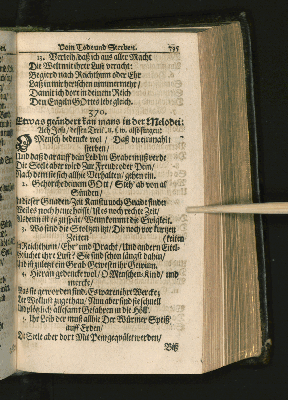 Vom Tode und Sterben. 795
13. Verleih/ daß ich aus aller Macht
Die Welt mit ihrer Lust veracht:
Begierd nach Reichthum oder Ehr
Laß in mir herschen nimmermehr/
Damit ich dort in deinem Reich
Den Engeln GOttes lebe gleich.
370.
Etwas geändert kan mans in der Melodei:
Ach Jesu/ dessen Treu/ u. s. w. also singen:
O Mensch bedencke wol/ Daß du einmahl
sterben/
Und daß darauf dein Leib im Grabe muß
Die Seele aber wird Zur Freude oder Pein/
Nach dem sie sich allhie Verhalten/ gehen ein.
2. Gehorche deinem GOtt/ Steh' ab von al
Sünden/
In dieser Gnaden-Zeit Kanstu noch Gnade finden
noch rechte Zeit/
ist es zu spät/ Wenn kommt die Ewigkeit.
3. Wo sind die Stoltzen itzt/ Die noch vor kurtzen
Zeiten
Reichthum/ Ehr' und Pracht/ Und andern Eitel-
(keiten
ihre Lust? Sie sind schon längst dahin/
Und ist zuletzt ein Grab Gewest ihr Gewinn.
4. Hieran gedencke wol/ O Menschen-Kind/ und
mercke/
Was sie geworden sind, Es waren ihr Wercke;
Die Wollust Nun aber sind sie schnell
Und plötzlich allesamt Gefahren in die Höll.
5. Ihr Leib der muß allhie Der Würmer Speiß'
auff Erden/
Die Seele aber dort Mit Pein gequälet werden/
Biß